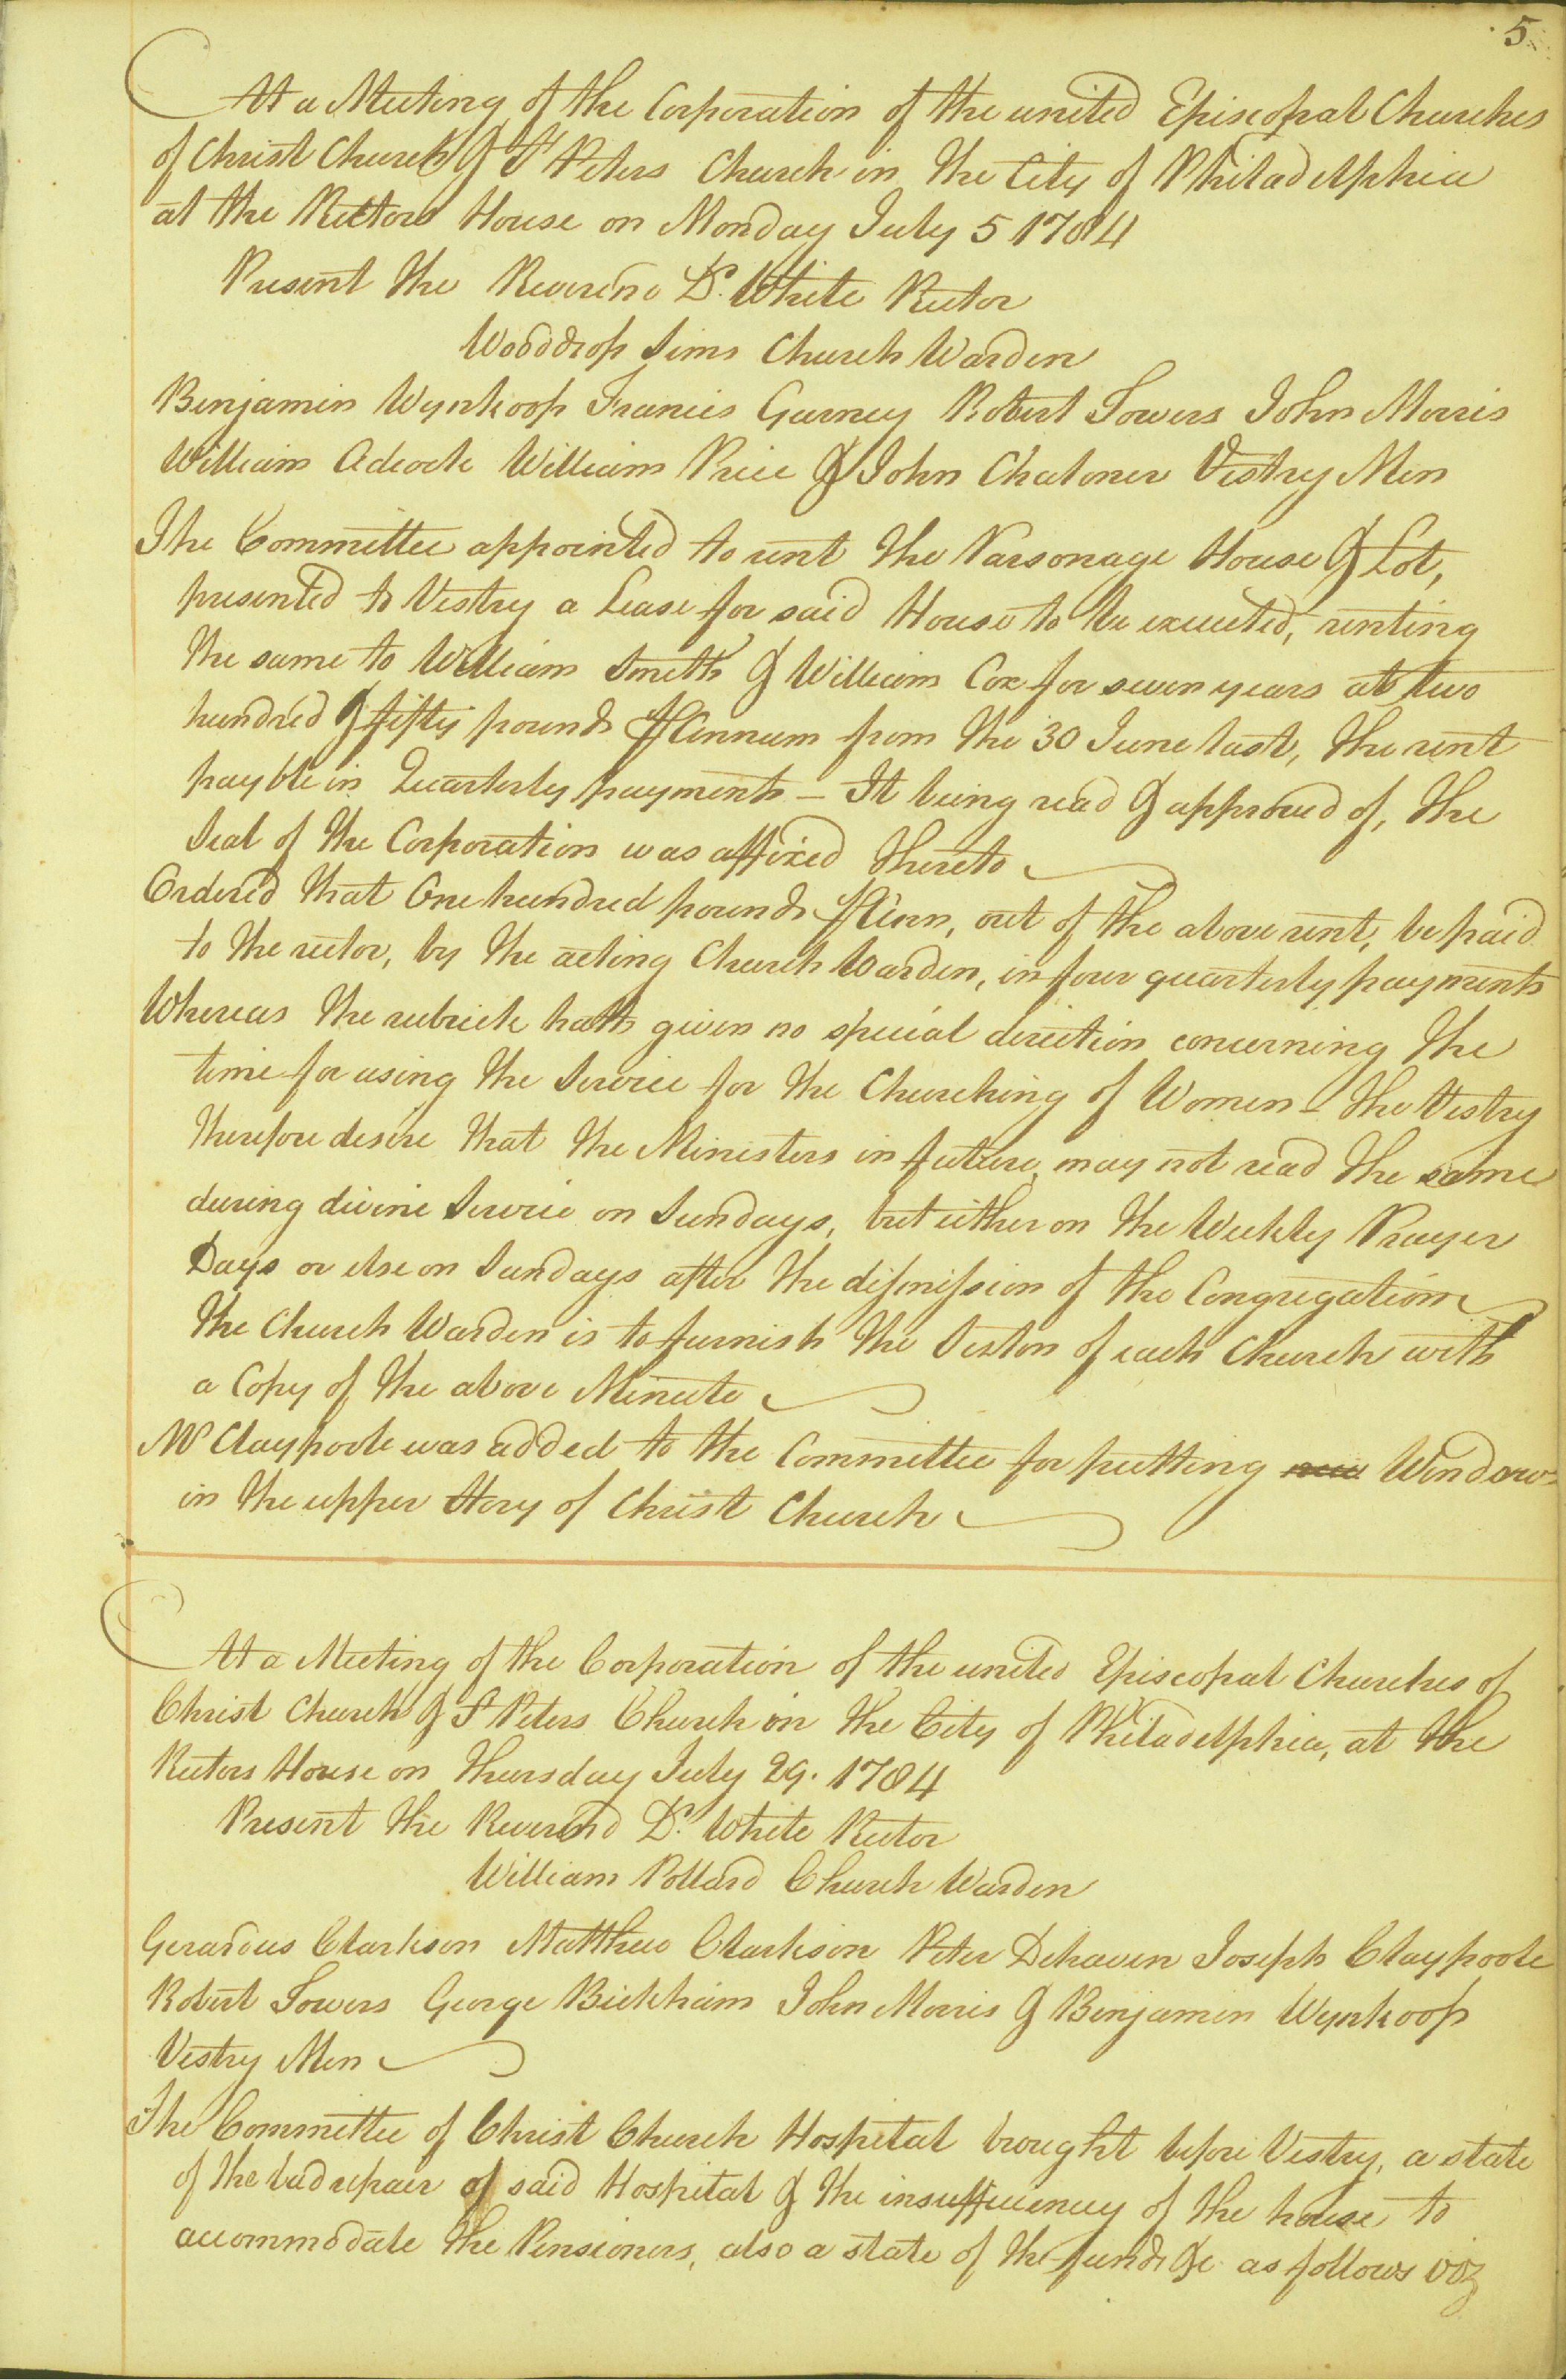 5
At a Meeting of the Corporation of the united Episcopal Churches
of Christ Church & St Peters Church in the City of Philadelphia
at the Rectors House on Monday July 5 1784
Present the Reverend Dr. White Rector
Wooddrop Sims Church Warden
Benjamin Wynkoop Francis Gurney Robert Towers John Morris
William Adcock William Price & John Chaloner Vestry Men
The Committee appointed to rent the Parsonage House & Lot,
presented to Vestry a Lease for said House to be executed, renting
the same to William Smith & William Cox for seven years at two
hundred & fifty pounds ⅌ Annum from the 30 June last, the rent
payble in Quarterly payments - It being read & approved of, the
Seal of the Corporation was affixed thereto
Ordered that One hundred pounds ⅌ Ann, out of the above rent, be paid
to the rector, by the acting Church Warden, in four quarterly payments
Whereas the rubrick hath given no special direction concerning the
time for using the Service for the Churching of Women - the Vestry
therefore desire that the Ministers in future, may not read the same
during divine Service on Sundays, but either on the Weekly Prayer
Days or else on Sundays after the dismission of the Congregation
The Church Warden is to furnish the Sexton of each Church with
a Copy of the above Minute
Mr Claypoole was added to the Committee for putting new Windows
in the upper Story of Christ Church
At a Meeting of the Corporation of the united Episcopal Churches of
Christ Church & St Peters Church in the City of Philadelphia, at the
Rectors House on Thursday July 29. 1784
Present the Reverend Dr. White Rector
William Pollard Church Warden
Gerardus Clarkson Matthew Clarkson Peter Dehaven Joseph Claypoole
Robert Towers George Bickham John Morris & Benjamin Wynkoop
Vestry Men
The Committee of Christ Church Hospital brought before Vestry, a state
of the bad repair of said Hospital & the insufficiency of the house to
accommodate the Pensioners, also a state of the funds &c as follows viz